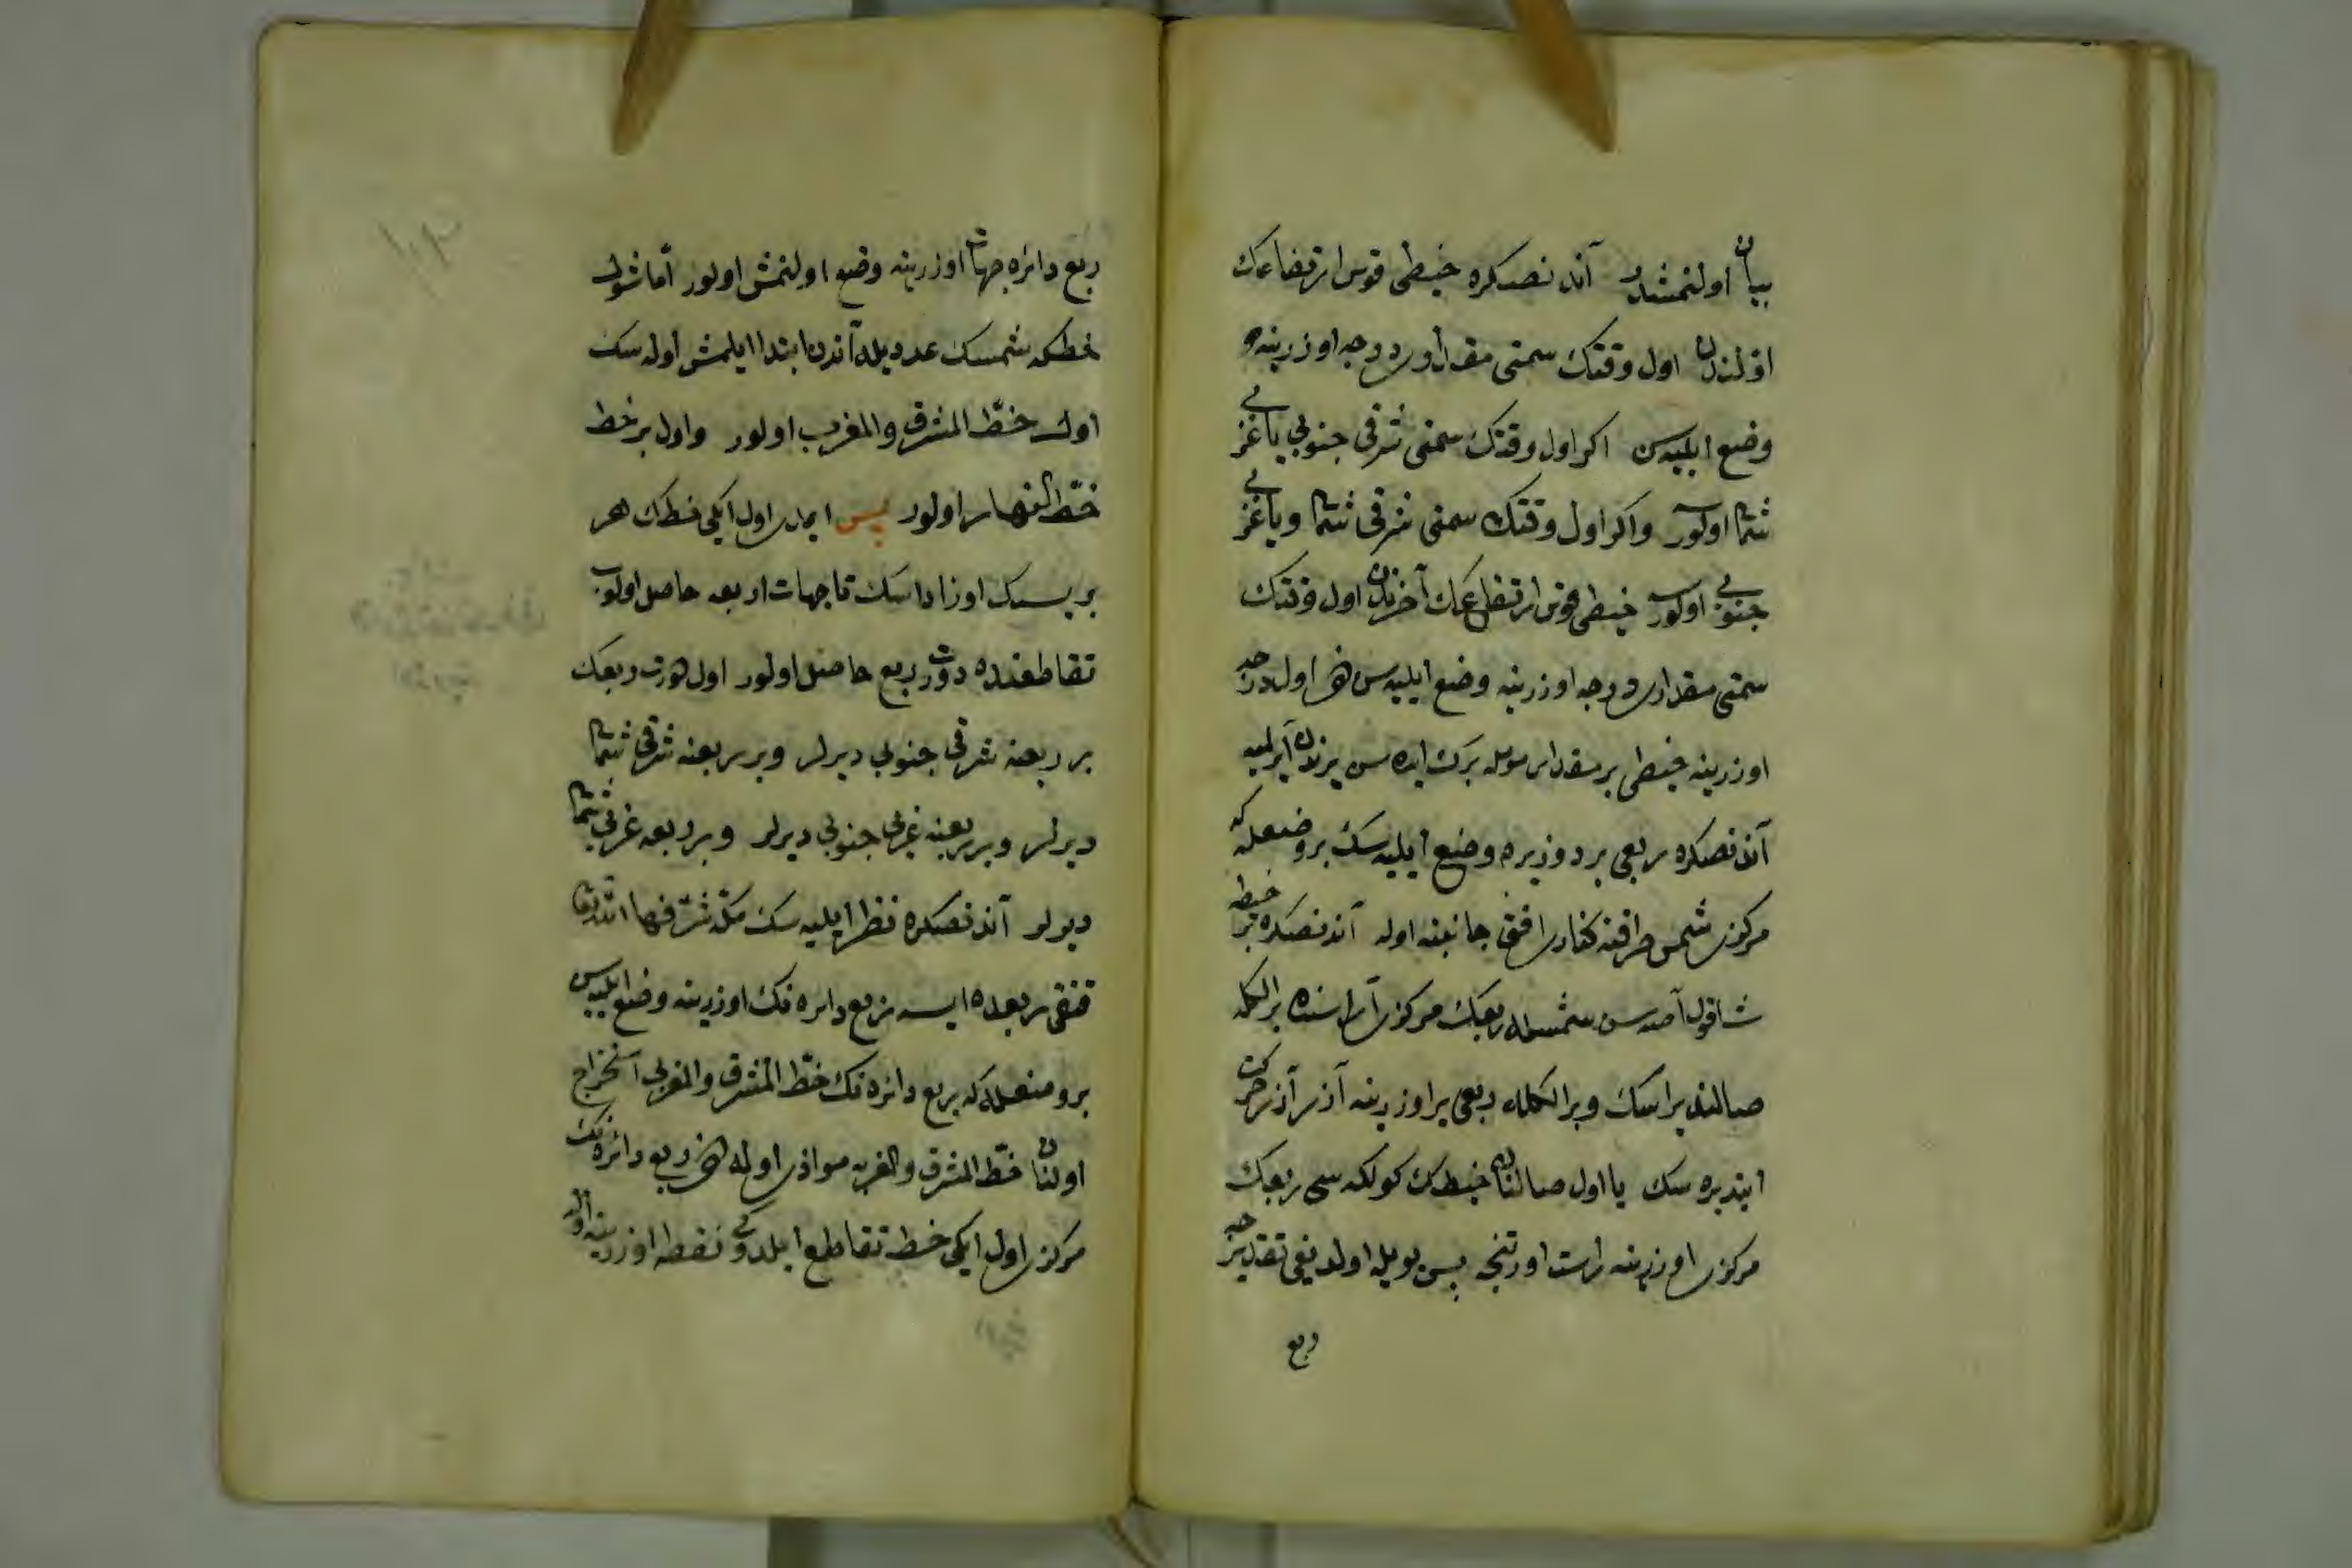 بيان اولنمشدر آندنصكره خيطى قوس ارتفاعك
اولندن اول وقتك سمتى مقدارى درجه اوزرينه
وضع ايليه سن اكر اول وقتك سمتى شرقى جنوبى يا غربى
شمالى اولور واكر اول وقتك سمتى شرقى شمالى ويا غربى
جنوبى اولور خيطى قوس ارتفاعك آخرندن اول وقتك
سمتى مقدارى درجه اوزرينه وضع ايليه سن هم اول درجه
اوزرينه خيطى بر مقدار مومله برك ايده سن يرندن آيرلميه
آندنصكره ربعى بر دوز يره وضع ايليه سك بر وضعله كه
مركزى شمس طرفنه كنارى افق جانبنه اوله آندنصكره بر خيطه
شاقول آصه سن شمسله ربعك مركزى آراسنده بر الكله
صالنديراسك وبر الكله ربعى ير اوزرينه آذر آذر حركت
ايتديره سك تا اول صالنان خيطك كولكه سى ربعك
مركزى اوزرينه راست اورنجه پس بويله اولديغى تقديرجه
ربع
ربع دائره جهات اوزرينه وضع اولنمش اولور اما شول
خطكه شمسك عدديله آندن ابتدا ايلمش اوله سك
اول خط المشرق والمغرب اولور واول بر خط
خط النهار اولور پس ايمدى اول ايكى خطك هر
بريسك اوزاداسك تا جهات اربعه حاصل اولوب
تقاطعنده دورت ربع حاصل اولور اول دورت ربعك
بر ربعنه شرقى جنوبى ديرلر وبر ربعنه شرقى شمالى
ديرلر وبر ربعنه غربى جنوبى ديرلر وبر ربعه غربى شمالى
ديرلر آندنصكره نظر ايليه سك مكه شرفها الله تعالى
قنغى ربعده ايسه ربع دائره نك اوزرينه وضع ايليه سن
بر وضعله كه ربع دائره نك خط المشرق والمغربى استخراج
اولنان خط المشرق والمغربه موازى اوله هم ربع دائره نك
مركزى اول ايكى خط تقاطع ايلدوكى نقطه اوزرينه اوله